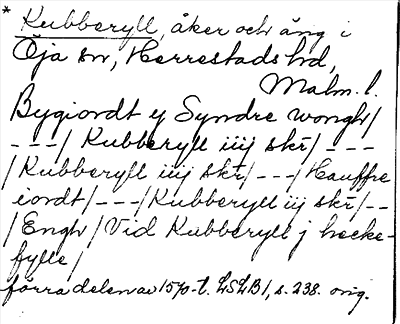 * Kubberyll, åker och äng i
Öja sn, Herrestads hd,
Malm. l.
Bygiordt ij Syndre wongh/
---/ Kubberyll iiij skr̄/---
/Kubberyll iiij skr̄/---/Hauffre
iordt/---/Kubberyll iij skr̄/--
/Engh/Vid Kubberyll j hecke-
fylle/
förra delen av 1570-t. LSLB1, s. 238. orig.